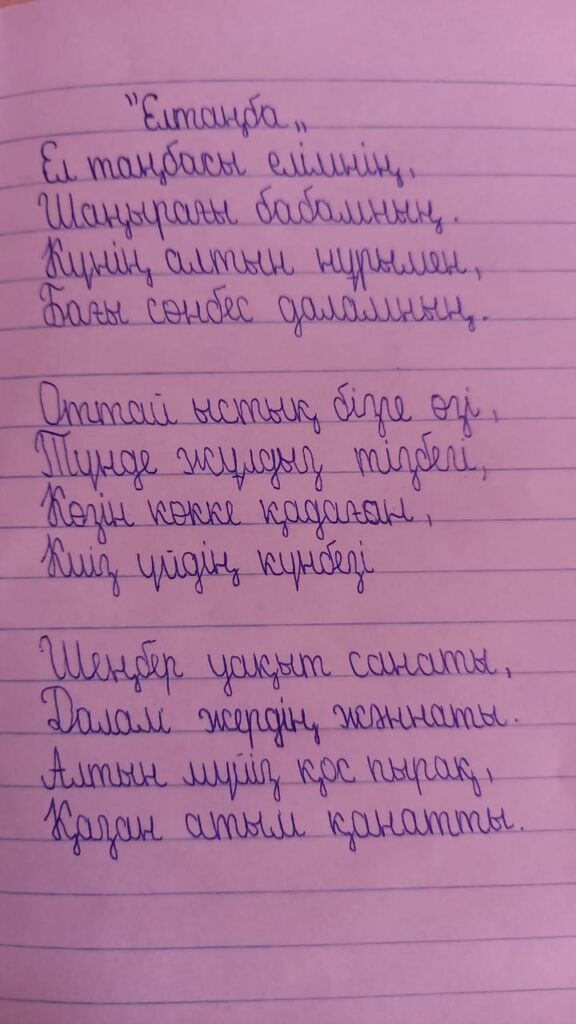 "Елтаңба"
Ел таңбасы елімнің,
Шаңырағы бабамның.
Күнің алтын нұрымен,
Бағы сөнбес даламның.
Оттай ыстық бізге өзі,
Түнде жұлдыз тізбегі,
Көзін көкке қадаған,
Киіз үйдің күнбезі
Шеңбер уақыт санаты,
Далам жердің жәннаты.
Алтын мүйіз қос пырақ,
Қазан атым қанатты.